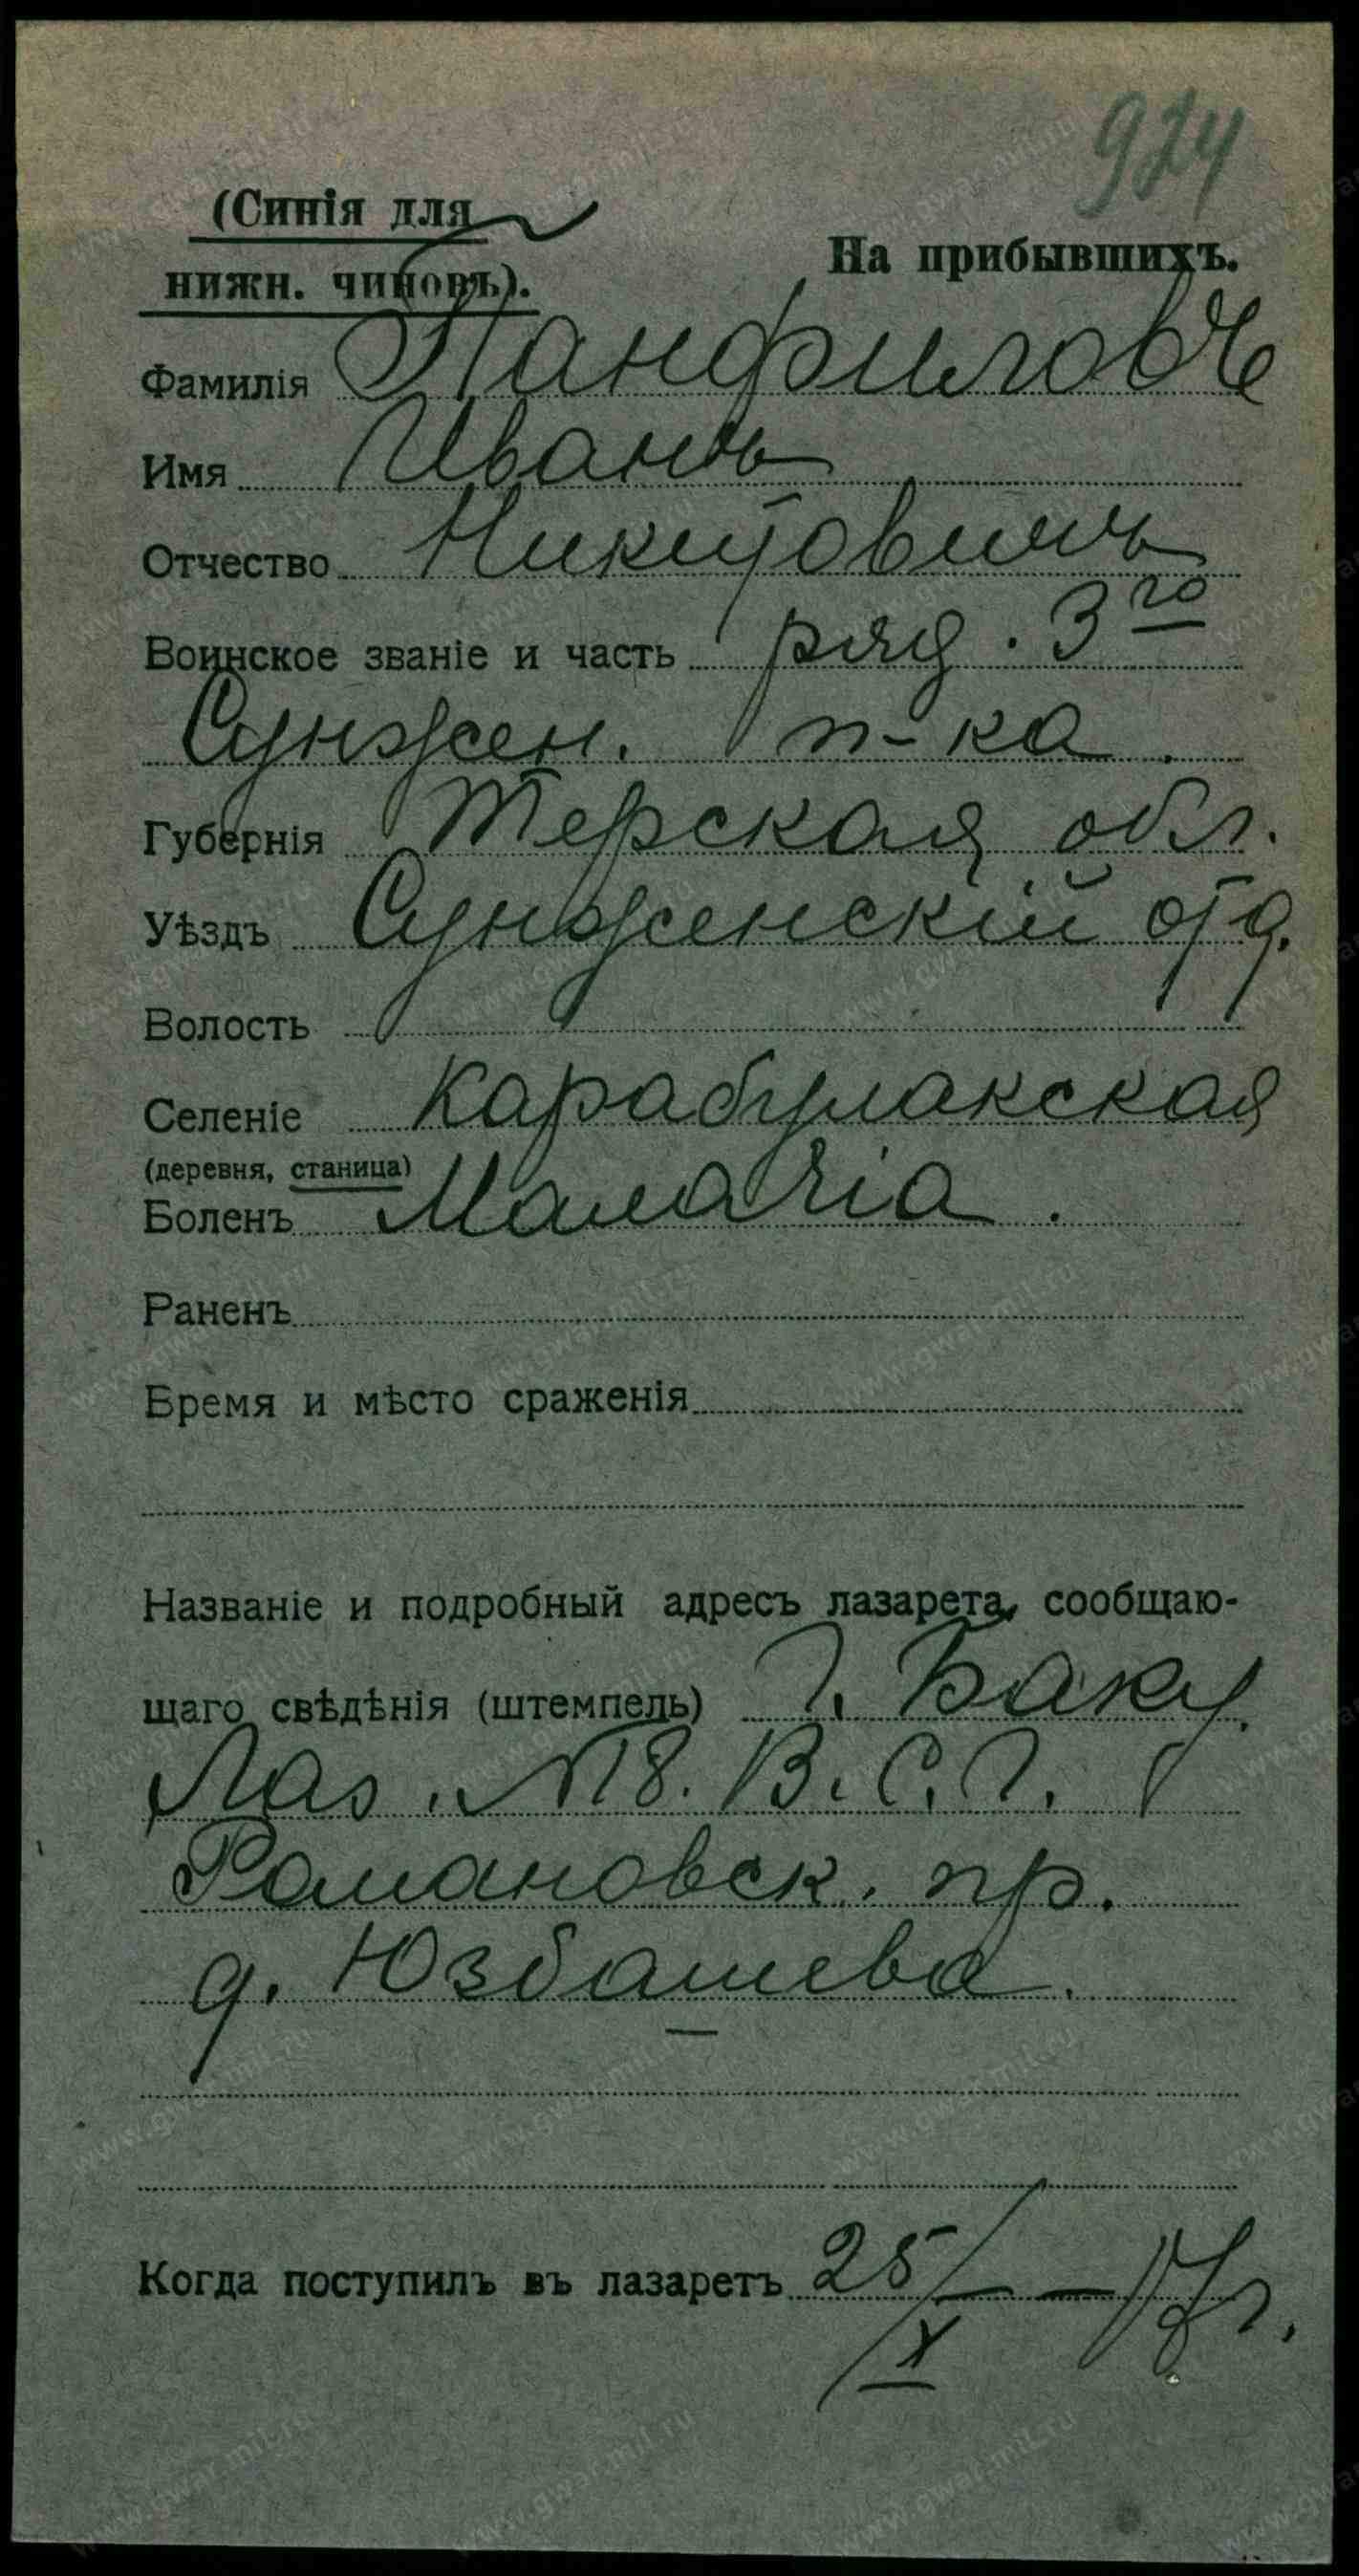 924
(Синія для
нижн. чиновъ).
На прибывшихъ.
Фамилія Панфиловъ
Имя Иванъ
Отчество Никитовичъ
Воинское званіе и часть ряд. 3го
Сунжен. п-ка.
Губернія Терская обл.
Уѣздъ Сунженскій отд.
Волость
Селеніе Карабулакская
(деревня, станица)
Боленъ Малагіа.
Раненъ
Время и мѣсто сраженія
Названіе и подробный адресъ лазарета, сообщаю-
щаго свѣдѣнія (штемпель) г. Баку.
Лаз. №18. В.С.Г.
Романовск. пр.
д. Юзбашева.
Когда поступилъ въ лазаретъ 25/X – 17 г.